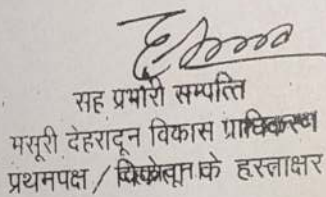 सह प्रभारी सम्पत्ति
मसूरी देहरादून विकास प्राधिकरण
प्रथमपक्ष / के हस्ताक्षर